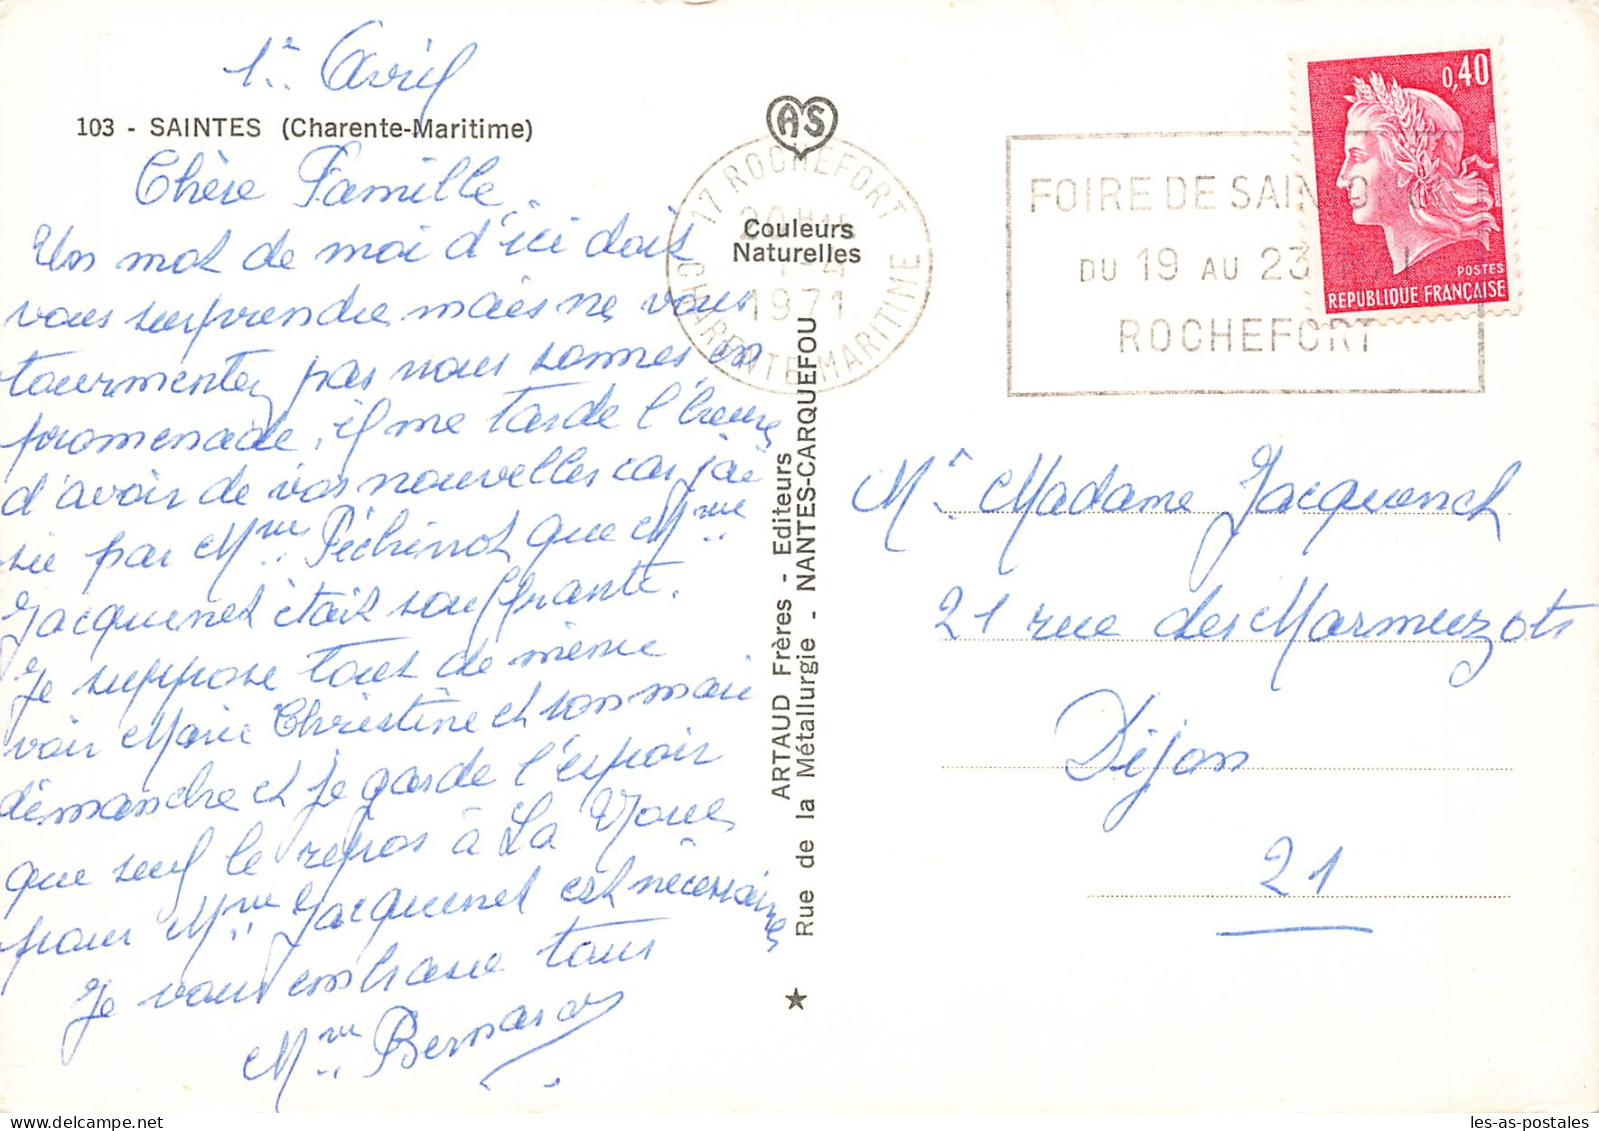 1er Avril
103 - SAINTES (Charente-Maritime)
Chère Famille,
Un mot de moi d'ici doit
vous surprendre mais ne vous
tourmentez pas nous sommes en
promenade, il me tarde l'heure
d'avoir de vos nouvelles car j'ai
su par Mme Péchinot que Mme
Jacquenet était souffrante.
Je suppose tout de même
voir Marie Christine et son mari
démanche et je garde l'espoir
que seul le repos à La
pour Mme Jacquenet est nécessaire
Je vous embrasse tous
Mme Bernard
AS
Couleurs
Naturelles
17 ROCHEFORT
20H15
1-4
1971
CHARENTE MARITIME
ARTAUD Frères - Editeurs
Rue de la Métallurgie - NANTES-CARQUEFOU
FOIRE DE SAIN
DU 19 AU 23 MAI
ROCHEFORT
0,40
POSTES
REPUBLIQUE FRANÇAISE
Mr Madame Jacquenet
21 rue des Marmuzots
Dijon
21
les-as-postales